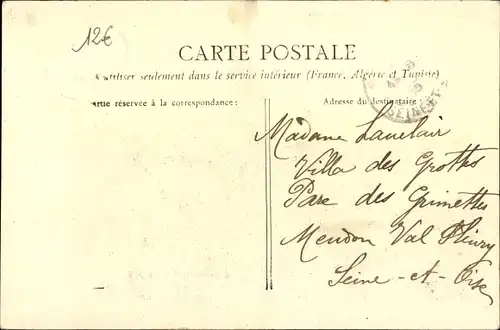 12€
CARTE POSTALE
A utiliser seulement dans le service intérieur (France, Algérie et Tunisie)
artie réservée à la correspondance:
Adresse du destinataire:
SEINE-ET-
Madame Lauclair
Villa des Grottes
Parc des Grimettes
Meudon Val Fleury
Seine-et-Oise